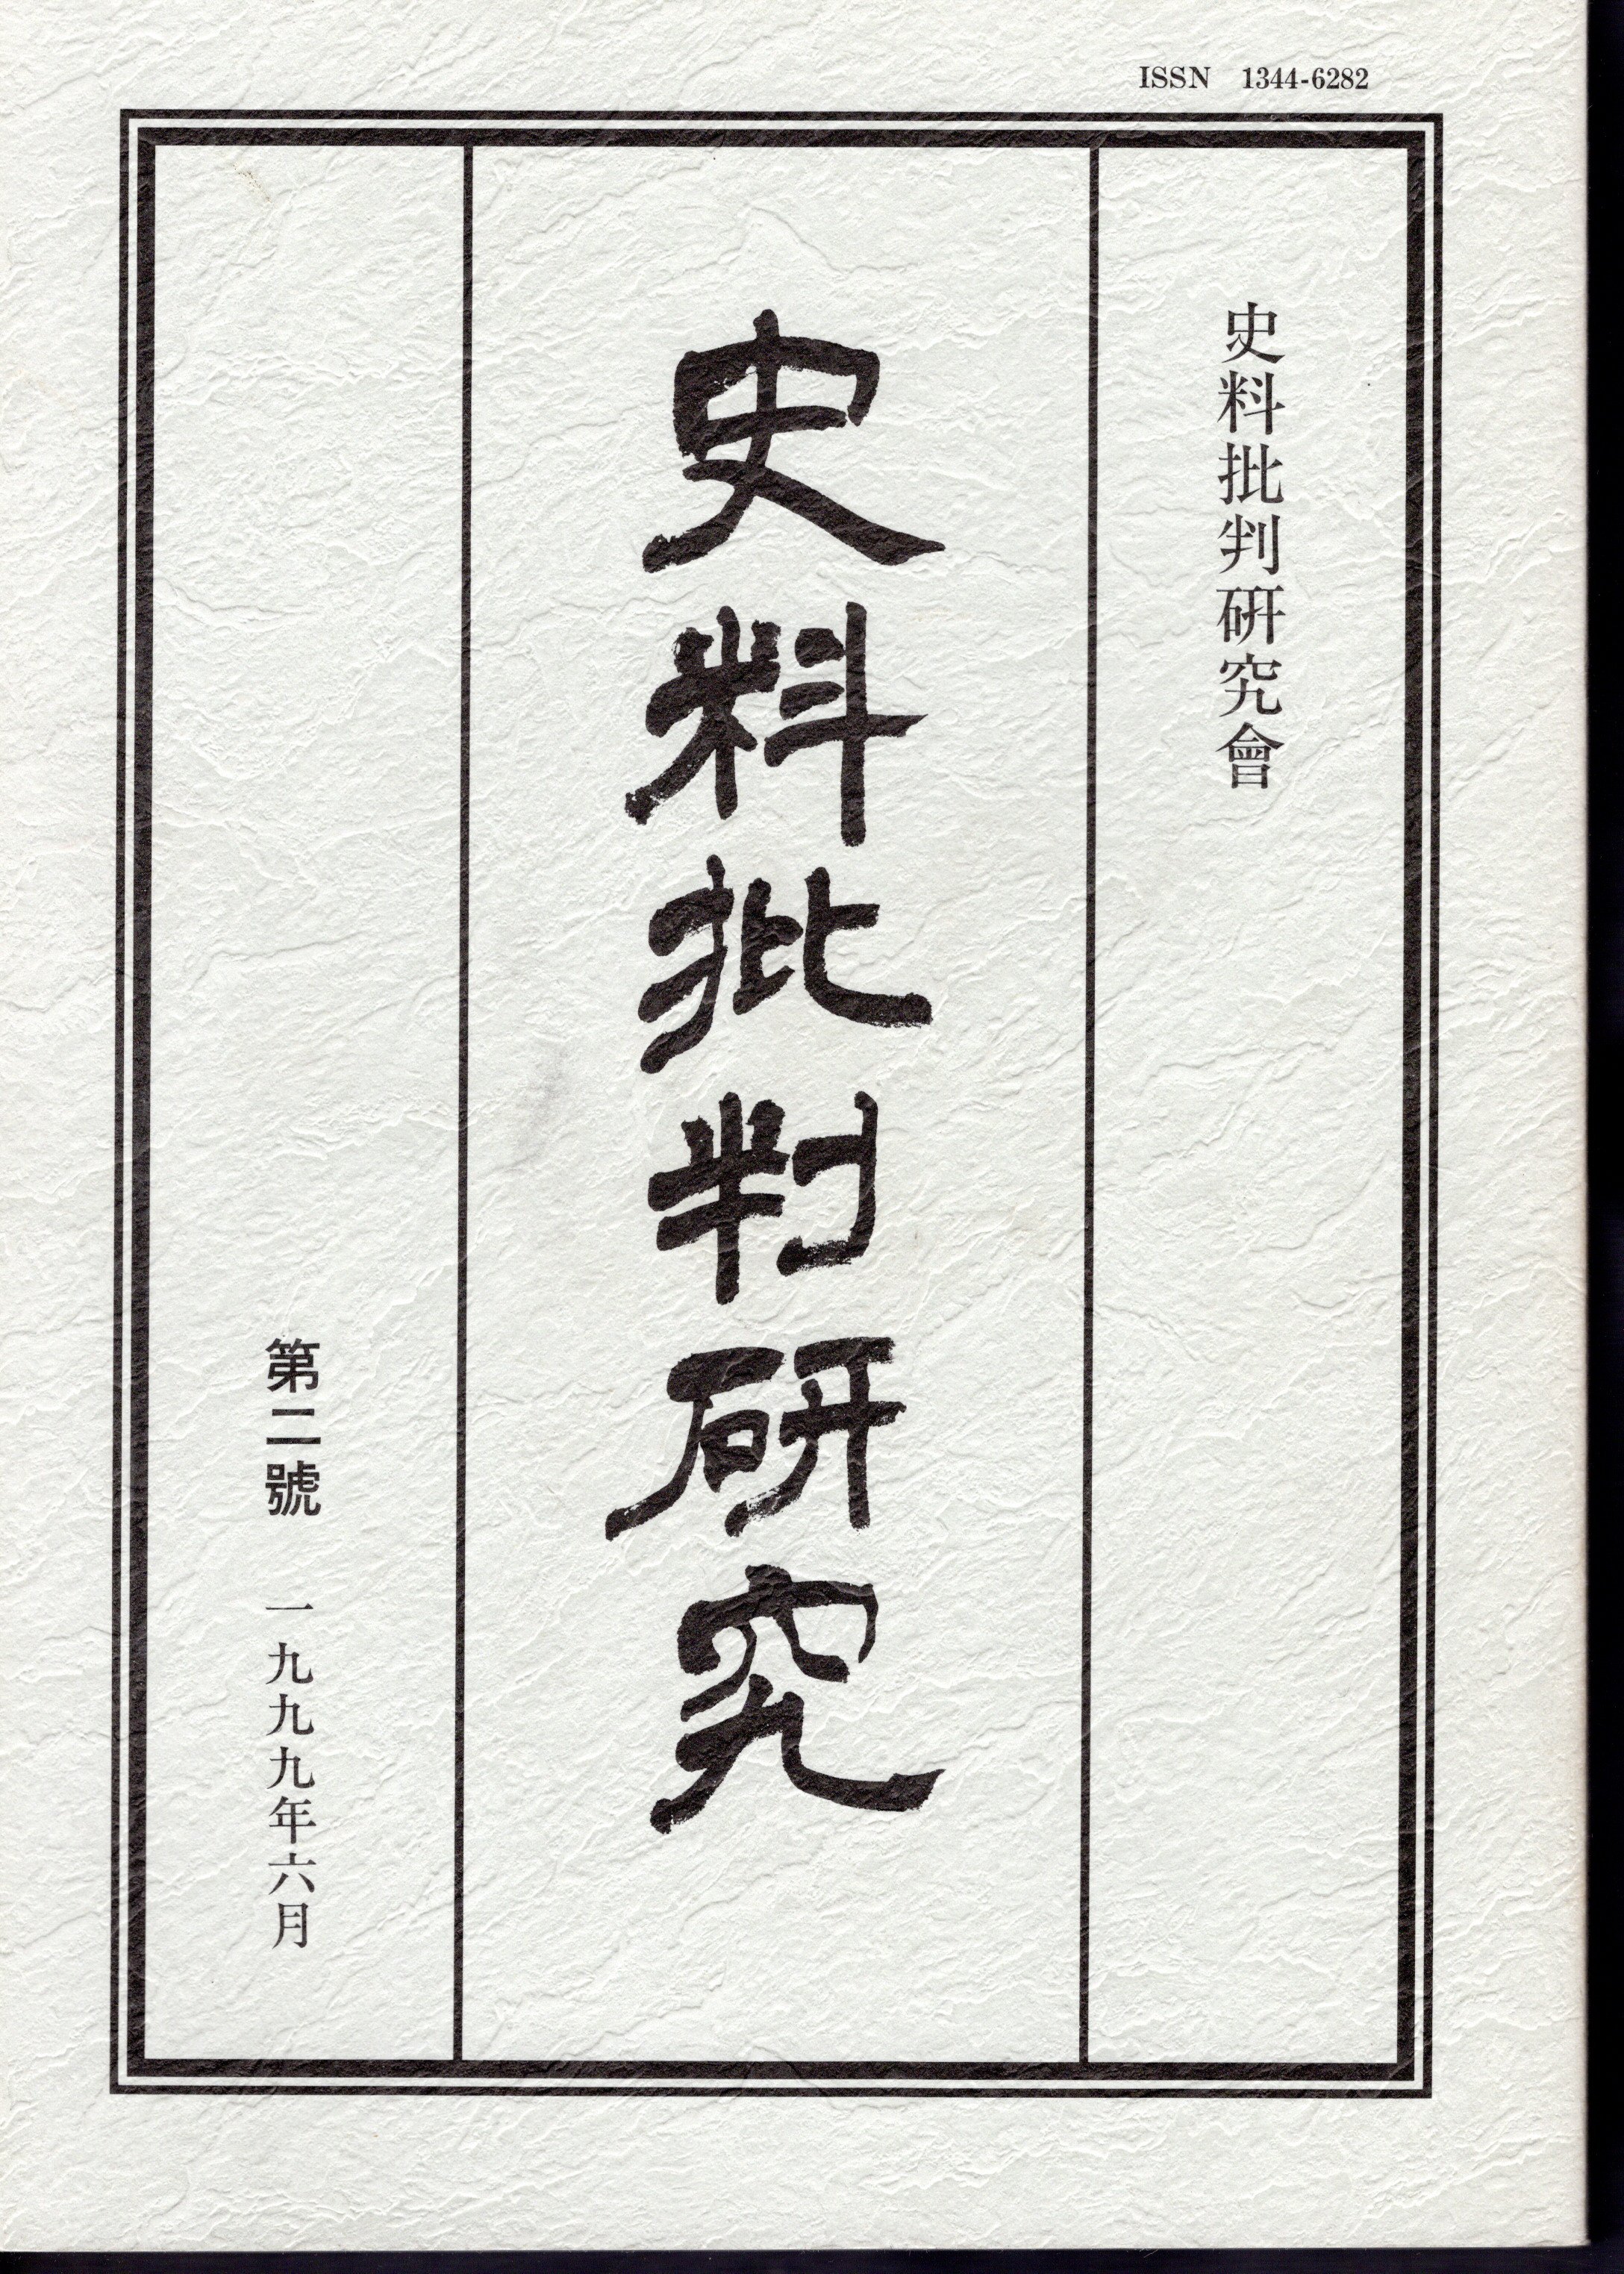 ISSN 1344-6282
史料批判研究會
史料批判研究
第二號 一九九九年六月